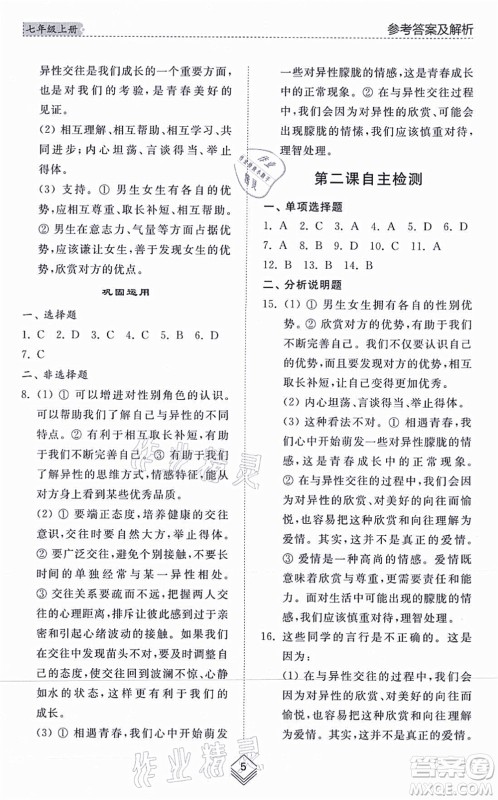 七年级上册
参考答案及解析
异性交往是我们成长的一个重要方面，
也是对我们的考验，是青春美好的
见证。
(2) 相互理解、相互帮助、相互学习、共
同进步；内心坦荡、言谈得当、举
止得体。
(3) 支持。① 男生女生各自的优势，
相互尊重、取长补短，促进我们发展。
② 男生在意志力、气量等方面占据优
势，应该谦让女生，发挥自己的优
势，欣赏对方的优点。
巩固运用
一、选择题
1. C 2. D 3. C 4. B 5. C 6. D
7. C
二、非选择题
8. (1) ① 可以增进对性别角色的认识。
帮助我们了解自己与异性的不同
特点。② 有利于相互取长补短，有
利于我们不断完善自己。③ 有助于
我们了解异性的思维方式，情感特征，能
从对方身上看到某些优秀品质。
(2) ① 要端正态度，培养健康的交往
意识，
② 要广泛交往，避免个别接触，不要长
时间单独经常与某一异性相处。
③ 交往关系要疏而不远，把握两人交往
的心理距离，排除让自己过分亲昵的接
触，以免引起心理纷乱。④ 在异性
的交往中要达到波澜不惊，心静
如水的境界，这样更有利于我们的
成长。
(3) ① 相遇青春，我们心中开始萌发
一些对异性朦胧的情感，这是青春成长
中的正常现象。② 在与异性交往的过
程中，我们会因为对异性的欣赏、对美
好的向往而愉悦。③ 面对生活中出现
的朦胧的情愫，我们应该慎重对待，
理智处理。
第二课自主检测
一、单项选择题
1. A 2. C 3. C 4. A 5. D 6. D
7. A 8. D 9. B 10. C 11. A
12. B 13. B 14. B
二、分析说明题
15. (1) ① 男生女生拥有各自的性别优
势。② 欣赏对方的优势，有助于我们
不断完善自己。③ 我们不仅要认识
自己的优势，也要发现对方的优
势，相互取长补短。
(2) 内心坦荡、言谈得当、举止得体。
(3) 这种看法不对。① 相遇青春，我
们心中开始萌发一些对异性朦胧的情
感，这是青春成长中的正常现象。
② 在与异性交往的过程中，我们会因
为对异性的欣赏、对美好的向往而愉
悦。其实，这并不是真正的爱情。
③ 爱情是一种高尚的情感。爱情意
味着欣赏、尊重、责任、能力等。
面对生活中出现的朦胧的情感，我们
应该慎重对待，理智处理。
16. 这些同学的言行是不正确的。这是
因为：
(1) 在与异性交往的过程中，我们会因
为对异性的欣赏、对美好的向往而愉
悦。其实，这并不是真正的爱情。
5